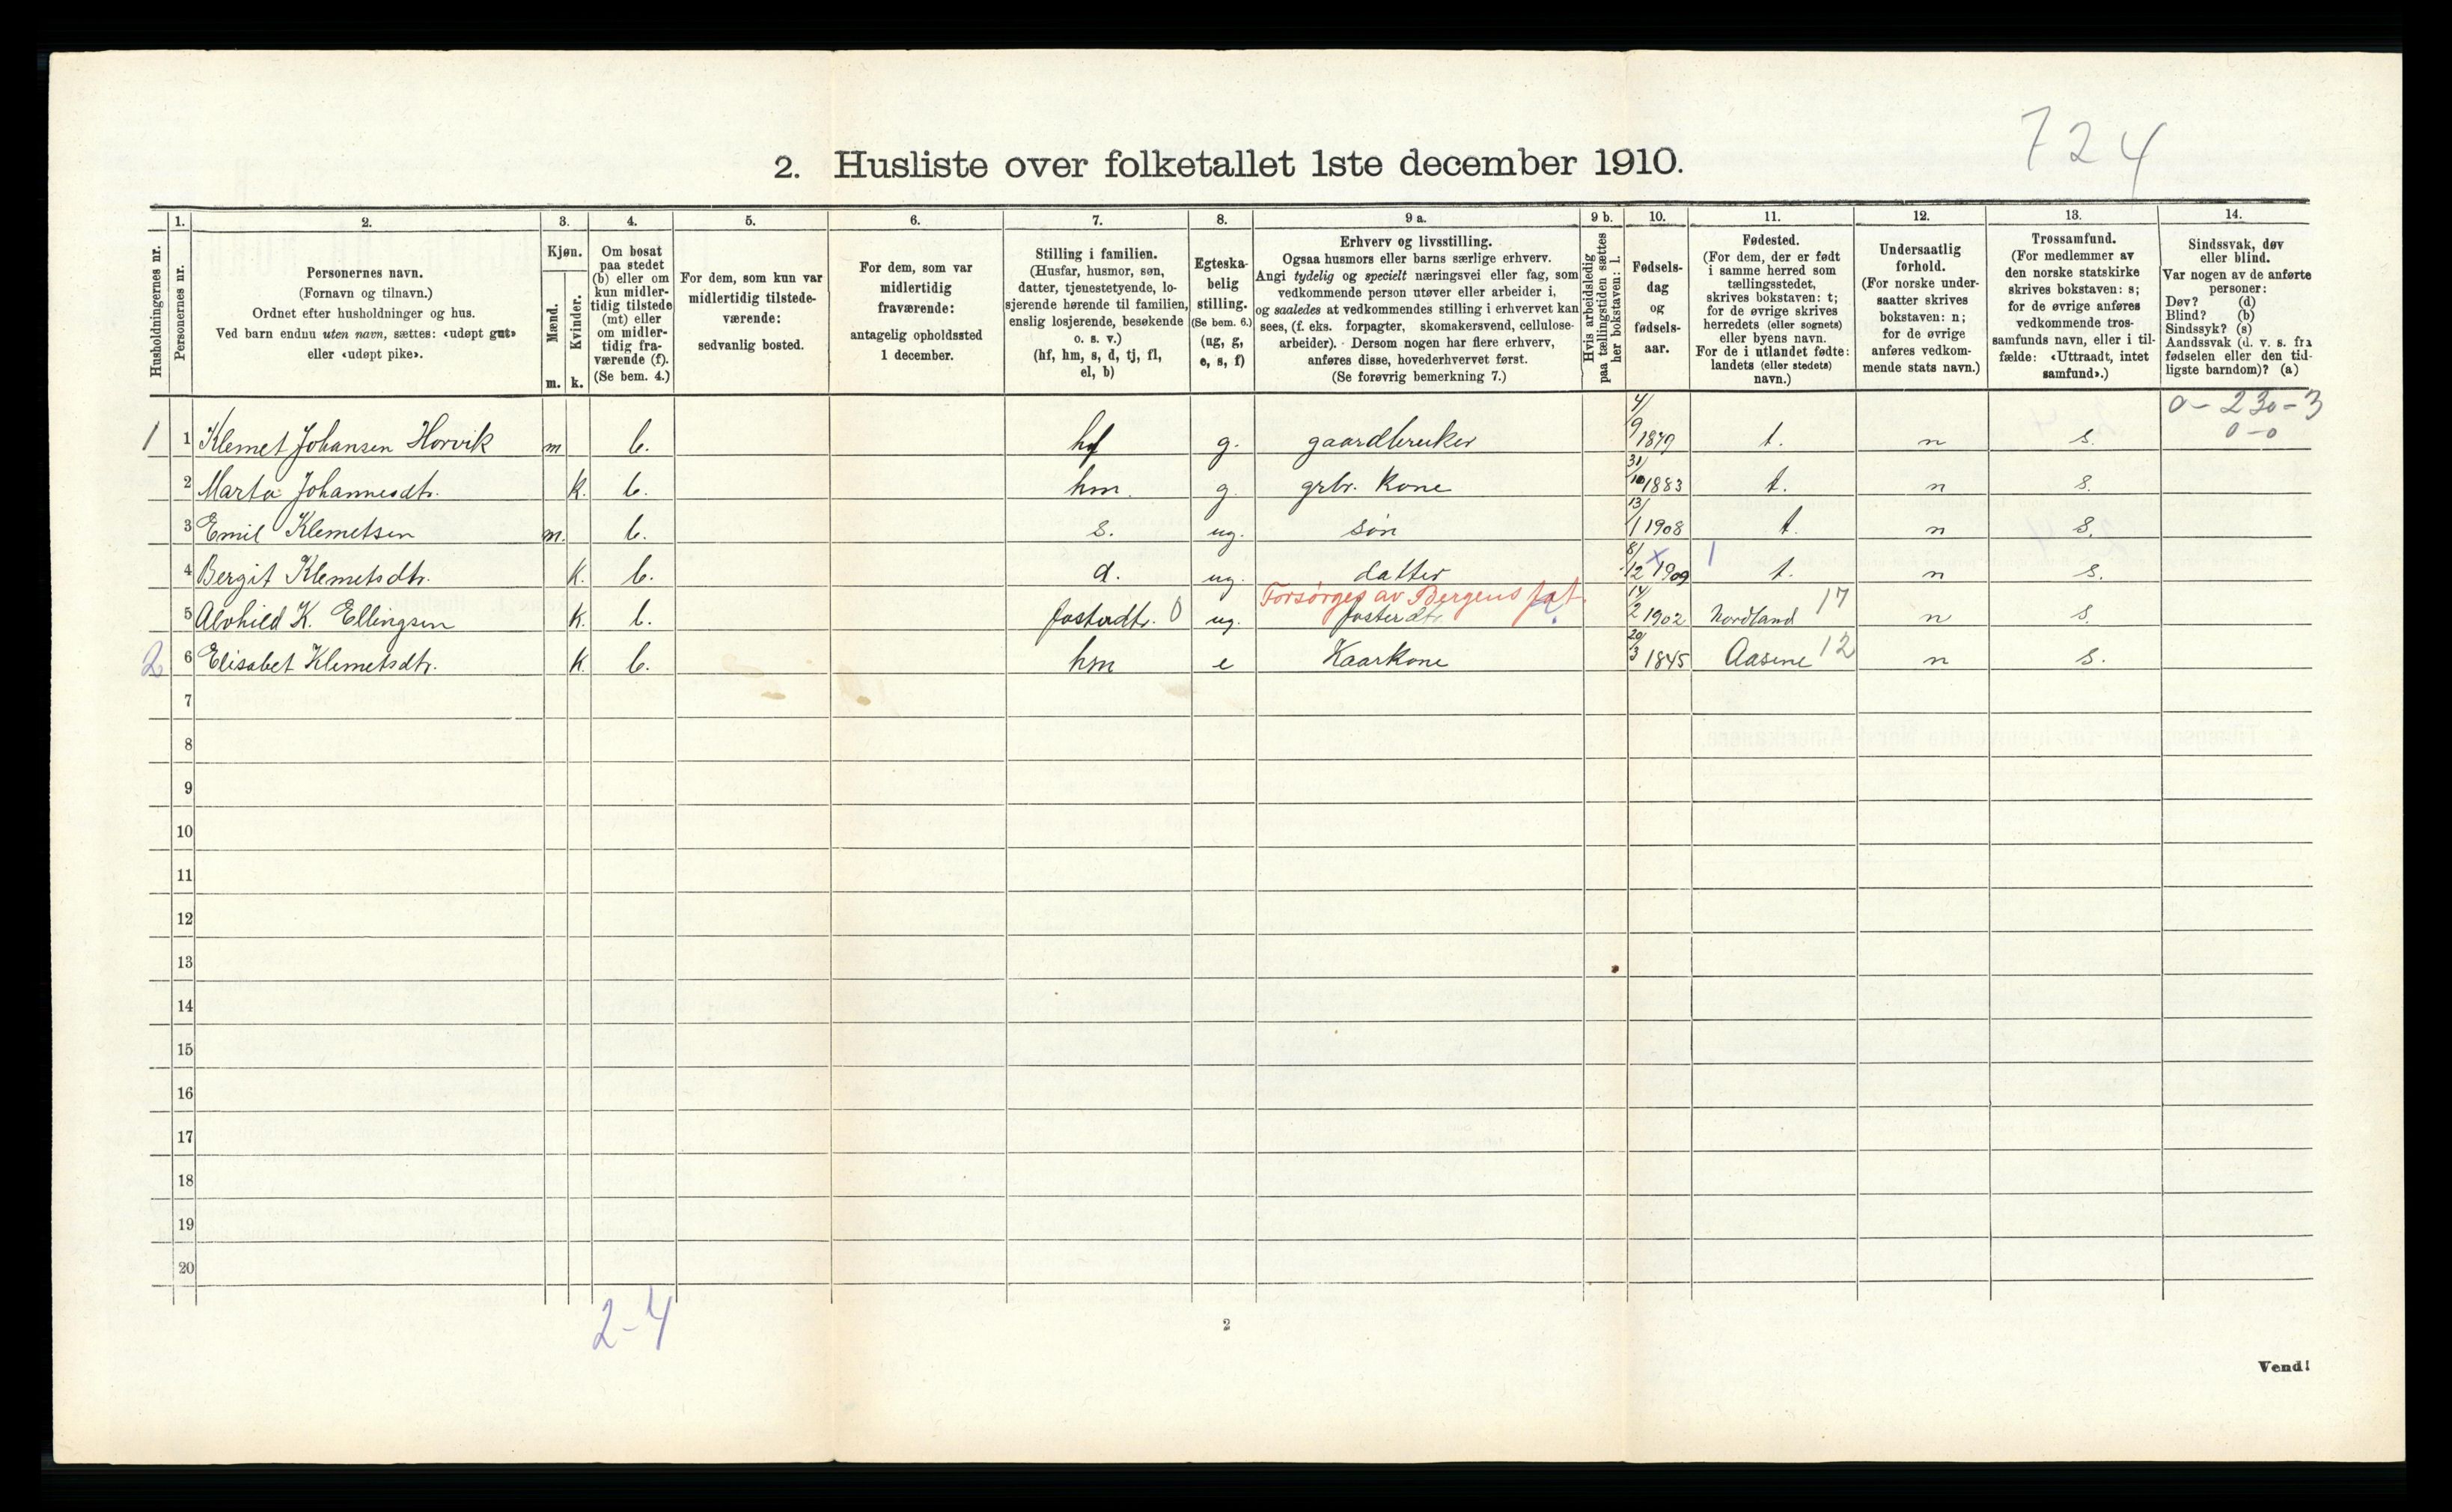 724
2. Husliste over folketallet 1ste december 1910.
Husholdningernes nr.
1.
Personernes nr.
2.
Personernes navn.
(Fornavn og tilnavn.)
Ordnet efter husholdninger og hus.
Ved barn endnu uten navn, sættes: «udøpt gut»
eller «udøpt pike».
3.
Kjøn.
Mænd.
m.
Kvinder.
k.
4.
Om bosat
paa stedet
(b) eller om
kun midler-
tidig tilstede
(mt) eller
om midler-
tidig fra-
værende (f).
(Se bem. 4.)
5.
For dem, som kun var
midlertidig tilstede-
værende:
sedvanlig bosted.
6.
For dem, som var
midlertidig
fraværende:
antagelig opholdssted
1 december.
7.
Stilling i familien.
(Husfar, husmor, søn,
datter, tjenestetyende, lo-
sjerende hørende til familien,
enslig losjerende, besøkende
o. s. v.)
(hf, hm, s, d, tj, fl,
el, b)
8.
Egteska-
belig
stilling.
(Se bem. 6.)
(ug, g,
e, s, f)
9 a.
Erhverv og livsstilling.
Ogsaa husmors eller barns særlige erhverv.
Angi tydelig og specielt næringsvei eller fag, som
vedkommende person utøver eller arbeider i,
og saaledes at vedkommendes stilling i erhvervet kan
sees, (f. eks. forpagter, skomakersvend, cellulose-
arbeider). Dersom nogen har flere erhverv,
anføres disse, hovederhvervet først.
(Se forøvrig bemerkning 7.)
9 b.
Hvis arbeidsledig
paa tællingstiden sættes
her bokstaven: l.
10.
Fødsels-
dag
og
fødsels-
aar.
11.
Fødested.
(For dem, der er født
i samme herred som
tællingsstedet,
skrives bokstaven: t;
for de øvrige skrives
herredets (eller sognets)
eller byens navn.
For de i utlandet fødte:
landets (eller stedets)
navn.)
12.
Undersaatlig
forhold.
(For norske under-
saatter skrives
bokstaven: n;
for de øvrige
anføres vedkom-
mende stats navn.)
13.
Trossamfund.
(For medlemmer av
den norske statskirke
skrives bokstaven: s;
for de øvrige anføres
vedkommende tros-
samfunds navn, eller i til-
fælde: «Uttraadt, intet
samfund».)
14.
Sindssvak, døv
eller blind.
Var nogen av de anførte
personer:
Døv? (d)
Blind? (b)
Sindssyk? (s)
Aandssvak (d. v. s. fra
fødselen eller den tid-
ligste barndom)? (a)
0 - 230 - 3
0 - 0
1 1 Klemet Johansen Horvik m b. hf g. gaardbruker 4/9 1879 t. n s.
2 Marta Johannesdtr. k. b. hm. g. grbr. Kone 31/10 1883 t. n s.
3 Emil Klemetsen m. b. s. ug. søn 13/1 1908 t. n s.
4 Bergit Klemetsdtr. k. b. d. ug. datter 8/12 x 1909 1 t. n s.
Forsørges av Bergens fat.
5 Alvhild K. Ellingsen k. b. fosterdtr. 0 ug. fosterdtr. 14/2 1902 Nordland 17 n s.
2 6 Elisabet Klemetsdtr. k. b. hm e Kaarkone 20/3 1845 Aasene 12 n s.
7
8
9
10
11
12
13
14
15
16
17
18
19
20
2-4
2
Vend!